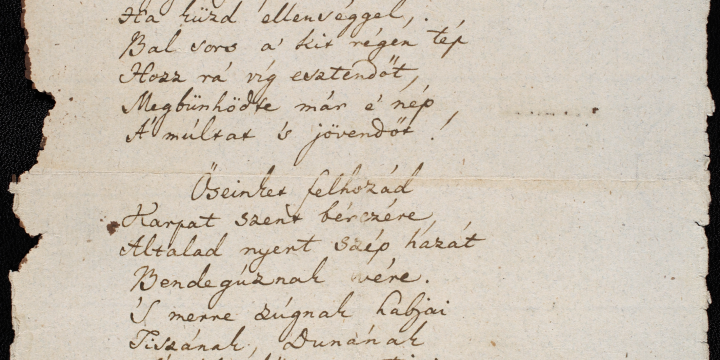 Ha küzd ellenséggel,
Bal sors a' kit régen tép
Hozz rá víg esztendőt,
Megbünhödte már e' nép
A' múltat 's jövendőt!
Őseinket felhozád
Karpat szent bérczére,
Altalad nyert szép hazát
Bendegúznak vére.
'S merre zúgnak habjai
Tiszának, Dunának